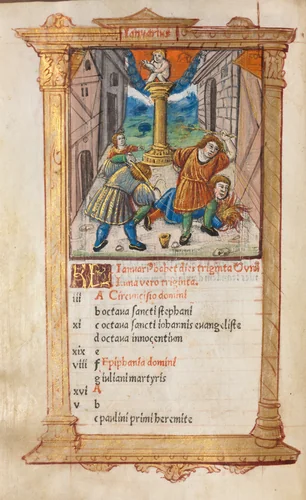 Ianuarius
KL Ianuari⁹ habet dies triginta
Luna vero triginta.
iii A Circuncisio domini
b octava sancti stephani
xi c octava sancti iohannis evangeliste
d octava innocentium
xix e
viii f Epiphania domini
g iuliani martyris
xvi A
v b
c paulini primi heremite